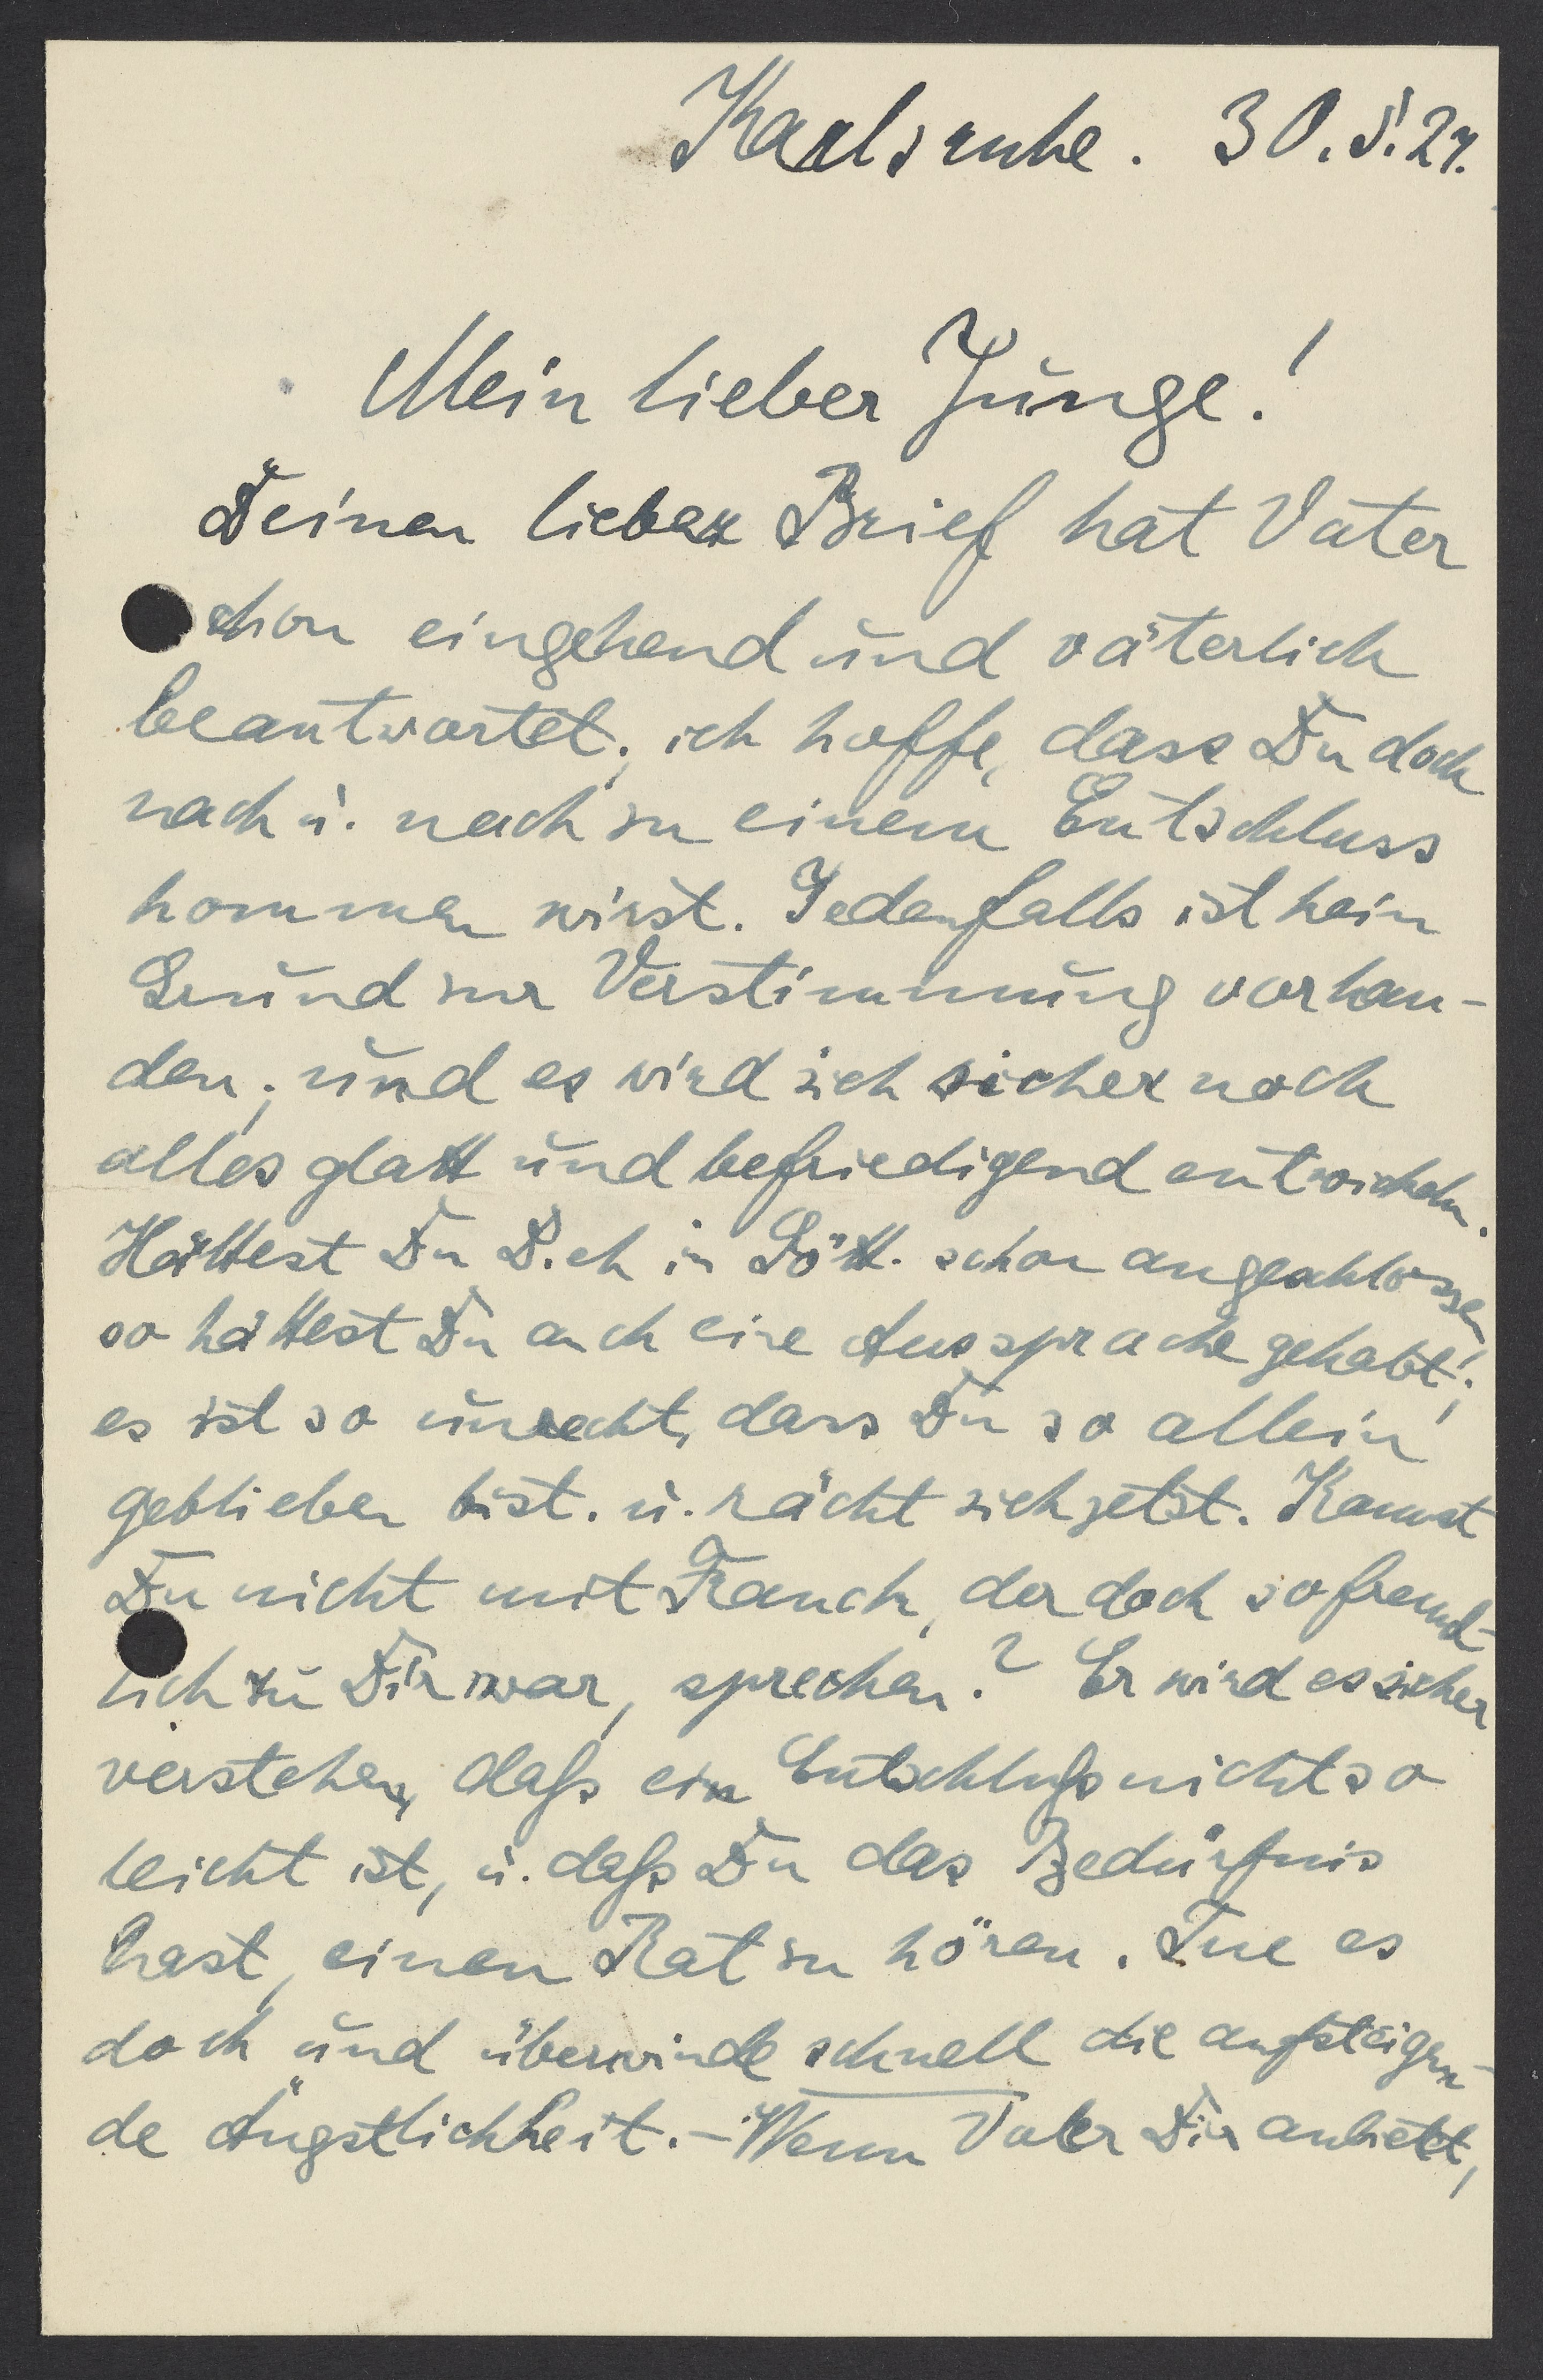 Karlsruhe. 30.5.24.
Mein lieber Junge!
Deinen lieben Brief hat Vater
schon eingehend und väterlich
beantwortet; ich hoffe, dass Du doch
nach u. nach zu einem Entschluss
kommen wirst. Jedenfalls ist kein
Grund zur Verstimmung vorhan-
den; und es wird sich sicher noch
alles glatt und befriedigend entwickeln.
Hättest Du Dich in Gött. schon angeschlossen
so hättest Du auch eine Aussprache gehabt!;
es ist so unrecht, dass Du so allein
geblieben bist. u. rächt sich jetzt. Kannst
Du nicht mit Franck, der doch so freund-
lich zu Dir war, sprechen? Er wird es sicher
verstehen, daß ein Entschluß nicht so
leicht ist, u. daß Du das Bedürfnis
hast, einen Rat zu hören. Tue es
doch und überwinde schnell die aufsteigen-
de Ängstlichkeit. - Wenn Vater Dir anbietet,